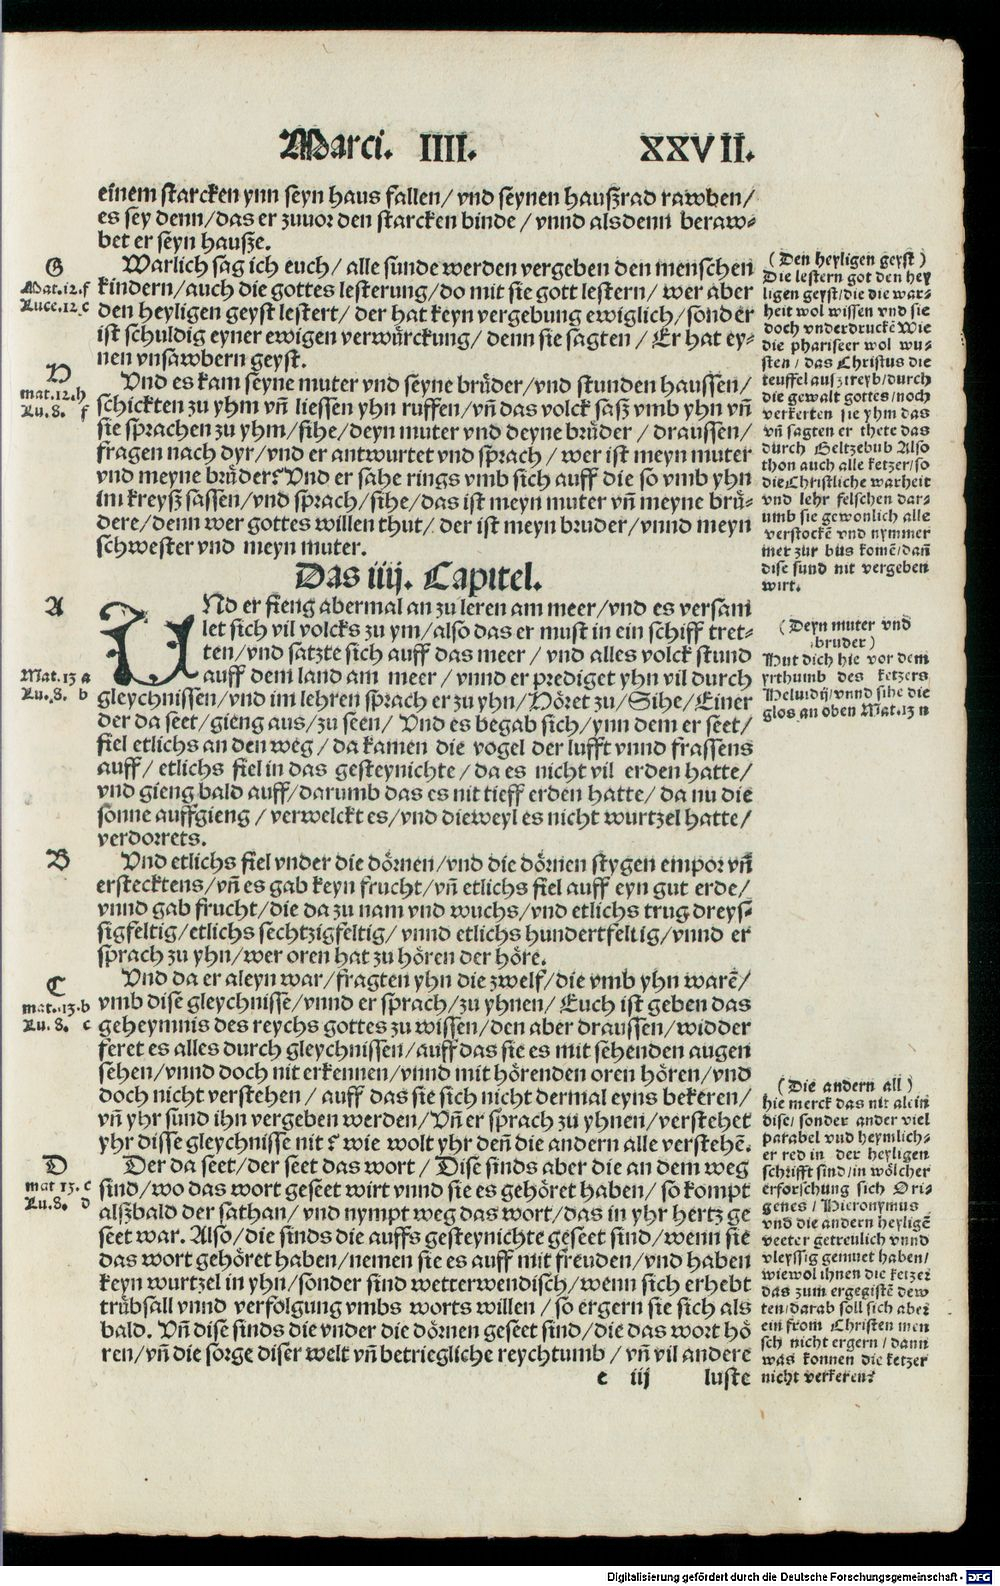 Marci. IIII. XXVII.
einem starcken ynn seyn haus fallen/ vnd seynen haußrad rawben/
es sey denn/das er zuuor den starcken binde / vnnd alsdenn beraw-
bet er seyn hauße.
G
Mat.12.f
Luce.12.c
Warlich sag ich euch/ alle sunde werden vergeben den menschen
kindern/auch die gottes lesterung/do mit sie gott lestern/ wer aber
den heyligen geyst lestert/ der hat keyn vergebung ewiglich/sonder
ist schuldig eyner ewigen verwürckung/ denn sie sagten / Er hat ey-
nen vnsawbern geyst.
(Den heyligen geyst)
Die lestern got den hey
ligen geyst/die die war-
heit wol wissen vnd sie
doch vnderdruckẽ Wie
die phariseer wol wu-
sten / das Christus die
teuffel aus ztreyb/durch
die gewalt gottes/noch
verkerten sie yhm das
vñ sagten er thete das
durch Beltzebub Also
thon auch alle ketzer/so
die Christliche warheit
vnd lehr felschen dar-
umb sie gewonlich alle
verstockẽ vnd nymmer
mer zur bus komẽ/dañ
dise sund nit vergeben
wirt.
mat.12.h
Lu.8. f
Vnd es kam seyne muter vnd seyne brüder/vnd stunden haussen/
schickten zu yhm vñ liessen yhn ruffen/vñ das volck saß vmb yhn vñ
sie sprachen zu yhm/sihe/deyn muter vnd deyne brüder / draussen/
fragen nach dyr/vnd er antwurtet vnd sprach / wer ist meyn muter
vnd meyne brüder? Vnd er sahe rings vmb sich auff die so vmb yhn
im kreyß sassen/vnd sprach/sihe/das ist meyn muter vñ meyne brü-
dere/denn wer gottes willen thut/ der ist meyn bruder/vnnd meyn
schwester vnd meyn muter.
Das iiij. Capitel.
A
Mat.13 a
Lu.8. b
UNd er fieng abermal an zu leren am meer/vnd es versam
let sich vil volcks zu ym/also das er must in ein schiff tret-
ten/vnd satzte sich auff das meer / vnd alles volck stund
auff dem land am meer / vnnd er prediget yhn vil durch
gleychnissen/vnd im lehren sprach er zu yhn/Höret zu/Sihe/Einer
der da seet/gieng aus/zu seen/ Vnd es begab sich/ynn dem er seet/
fiel etlichs an den weg / da kamen die vogel der lufft vnnd frassens
auff/ etlichs fiel in das gesteynichte / da es nicht vil erden hatte/
vnd gieng bald auff/darumb das es nit tieff erden hatte/ da nu die
sonne auffgieng / verwelckt es/vnd dieweyl es nicht wurtzel hatte/
verdorrets.
(Deyn muter vnd
bruder)
Hut dich hie vor dem
yrthumb des ketzers
Heluidij/vnnd sihe die
glos an oben Mat.13 n
B
Vnd etlichs fiel vnder die dörnen/vnd die dörnen stygen empor vñ
erstecktens/vñ es gab keyn frucht/vñ etlichs fiel auff eyn gut erde/
vnnd gab frucht/die da zu nam vnd wuchs/vnd etlichs trug dreys-
sigfeltig/etlichs sechtzigfeltig/ vnnd etlichs hundertfeltig/vnnd er
sprach zu yhn/wer oren hat zu hören der höre.
C
mat.13.b
Lu.8. c
Vnd da er aleyn war/fragten yhn die zwelf/die vmb yhn warẽ/
vmb dise gleychnissẽ/vnnd er sprach/zu yhnen/ Euch ist geben das
geheymnis des reychs gottes zu wissen/den aber draussen/widder
feret es alles durch gleychnissen/auff das sie es mit sehenden augen
sehen/vnnd doch nit erkennen/vnnd mit hörenden oren hören/vnd
doch nicht verstehen / auff das sie sich nicht dermal eyns bekeren/
vñ yhr sund ihn vergeben werden/Vñ er sprach zu yhnen/verstehet
yhr disse gleychnisse nit? wie wolt yhr deñ die andern alle verstehẽ.
D
mat 13. c
Lu.8. d
Der da seet/der seet das wort / Dise sinds aber die an dem weg
sind/wo das wort geseet wirt vnnd sie es gehöret haben/ so kompt
alßbald der sathan/vnd nympt weg das wort/das in yhr hertz ge
seet war. Also/die sinds die auffs gesteynichte geseet sind/wenn sie
das wort gehöret haben/nemen sie es auff mit freuden/vnd haben
keyn wurtzel in yhn/sonder sind wetterwendisch/wenn sich erhebt
trübsall vnnd verfolgung vmbs worts willen / so ergern sie sich als
bald. Vñ dise sinds die vnder die dörnen geseet sind/die das wort hö
ren/vñ die sorge diser welt vñ betriegliche reychtumb / vñ vil andere
e iij luste
(Die andern all)
hie merck das nit alein
dise/ sonder ander viel
parabel vnd heymlich-
er red in der heyligen
schrifft sind/in wölcher
erforschung sich Ori-
genes / Hieronymus
vnd die andern heyligẽ
veeter getreulich vnnd
vleyssig gemuet haben/
wiewol ihnen die ketzer
das zum ergegistẽ dew
ten/darab soll sich aber
ein from Christen men
sch nicht ergern / dann
was konnen die ketzer
nicht verkeren?
Digitalisierung gefördert durch die Deutsche Forschungsgemeinschaft - DFG